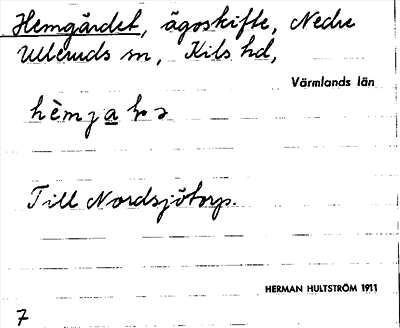 Hemgärdet, ägoskifte, Nedre
Ulleruds sn, Kils hd,
Värmlands län
Till Nordsjötorp.
HERMAN HULTSTRÖM 1911
7